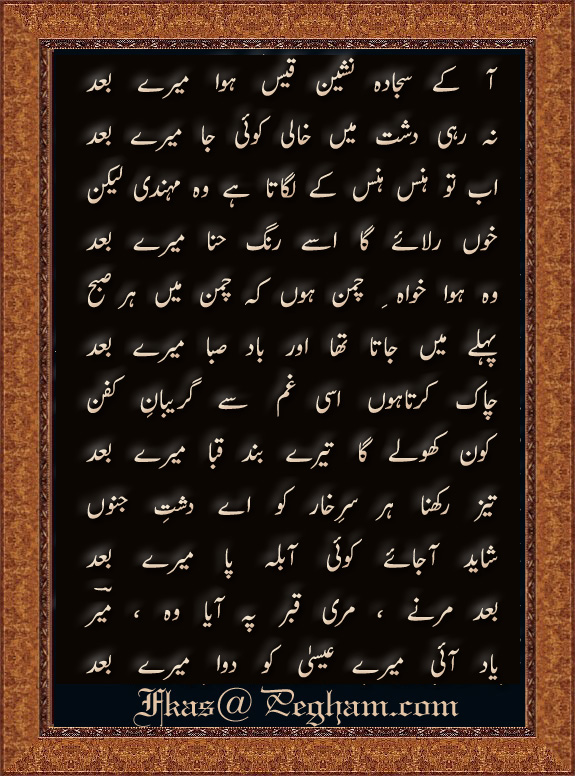 آ کے سجادہ نشین قیس ہوا میرے بعد
نہ رہی دشت میں خالی کوئی جا میرے بعد
اب تو ہنس ہنس کے لگاتا ہے وہ مہندی لیکن
خوں رلائے گا اسے رنگ حنا میرے بعد
وہ ہوا خواہ ِ چمن ہوں کہ چمن میں ہر صبح
پہلے میں جاتا تھا اور باد صبا میرے بعد
چاک کرتاہوں اسی غم سے گریبانِ کفن
کون کھولے گا تیرے بند قبا میرے بعد
تیز رکھنا ہر سرِخار کو اے دشتِ جنوں
شاید آجائے کوئی آبلہ پا میرے بعد
بعد مرنے ، مری قبر پہ آیا وہ ، میرؔ
یاد آئی میرے عیسیٰ کو دوا میرے بعد
Fkas@Pegham.com